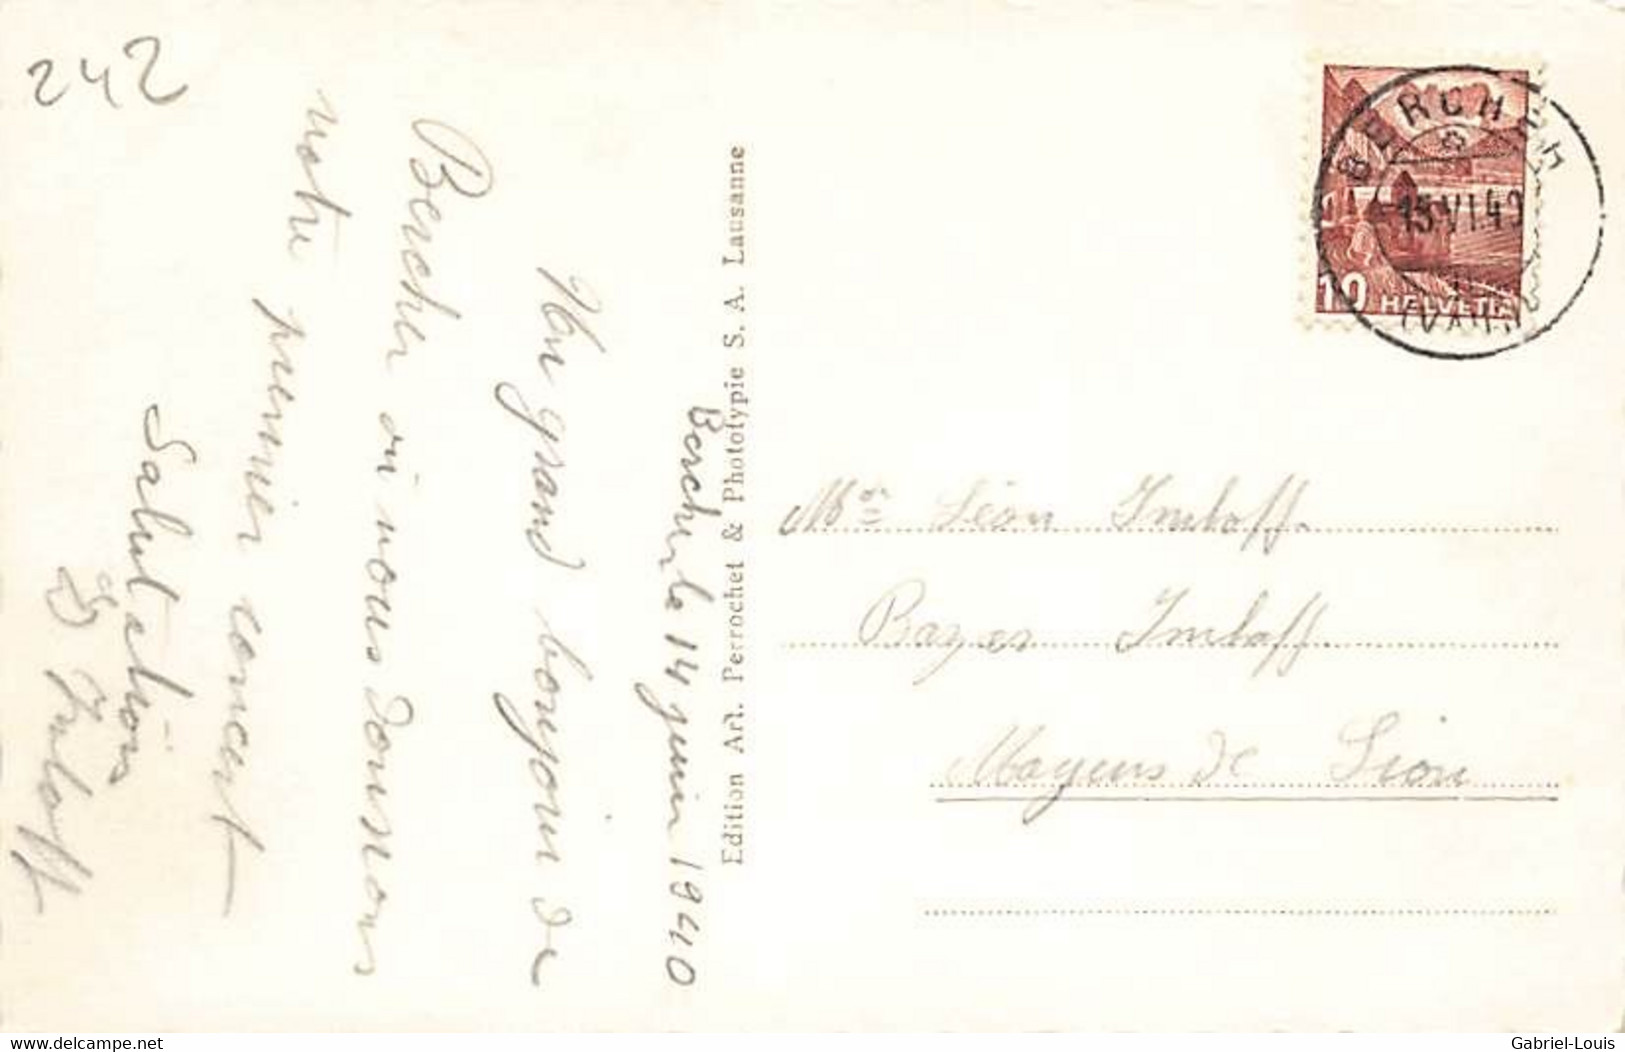 242
Bercher, le 14 juin 1940
Un grand bonjour de
Bercher où nous donnons
notre premier concert
Salutations
Imhoff
Edition Art. Perrochet & Phototypie S. A. Lausanne
BERCHER
(VAUD)
10 HELVETIA
Mr Léon Imhoff.
Imhoff.
Mayens de Sion
www.delcampe.net
Gabriel-Louis